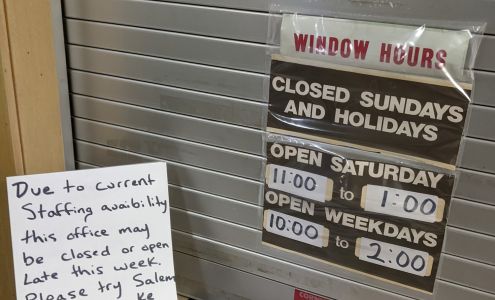 WINDOW HOURS
CLOSED SUNDAYS
AND HOLIDAYS
OPEN SATURDAY
11:00 to 1:00
OPEN WEEKDAYS
10:00 to 2:00
Due to current
Staffing avaibility
this office may
be closed or open
Late this week.
Please try Salem